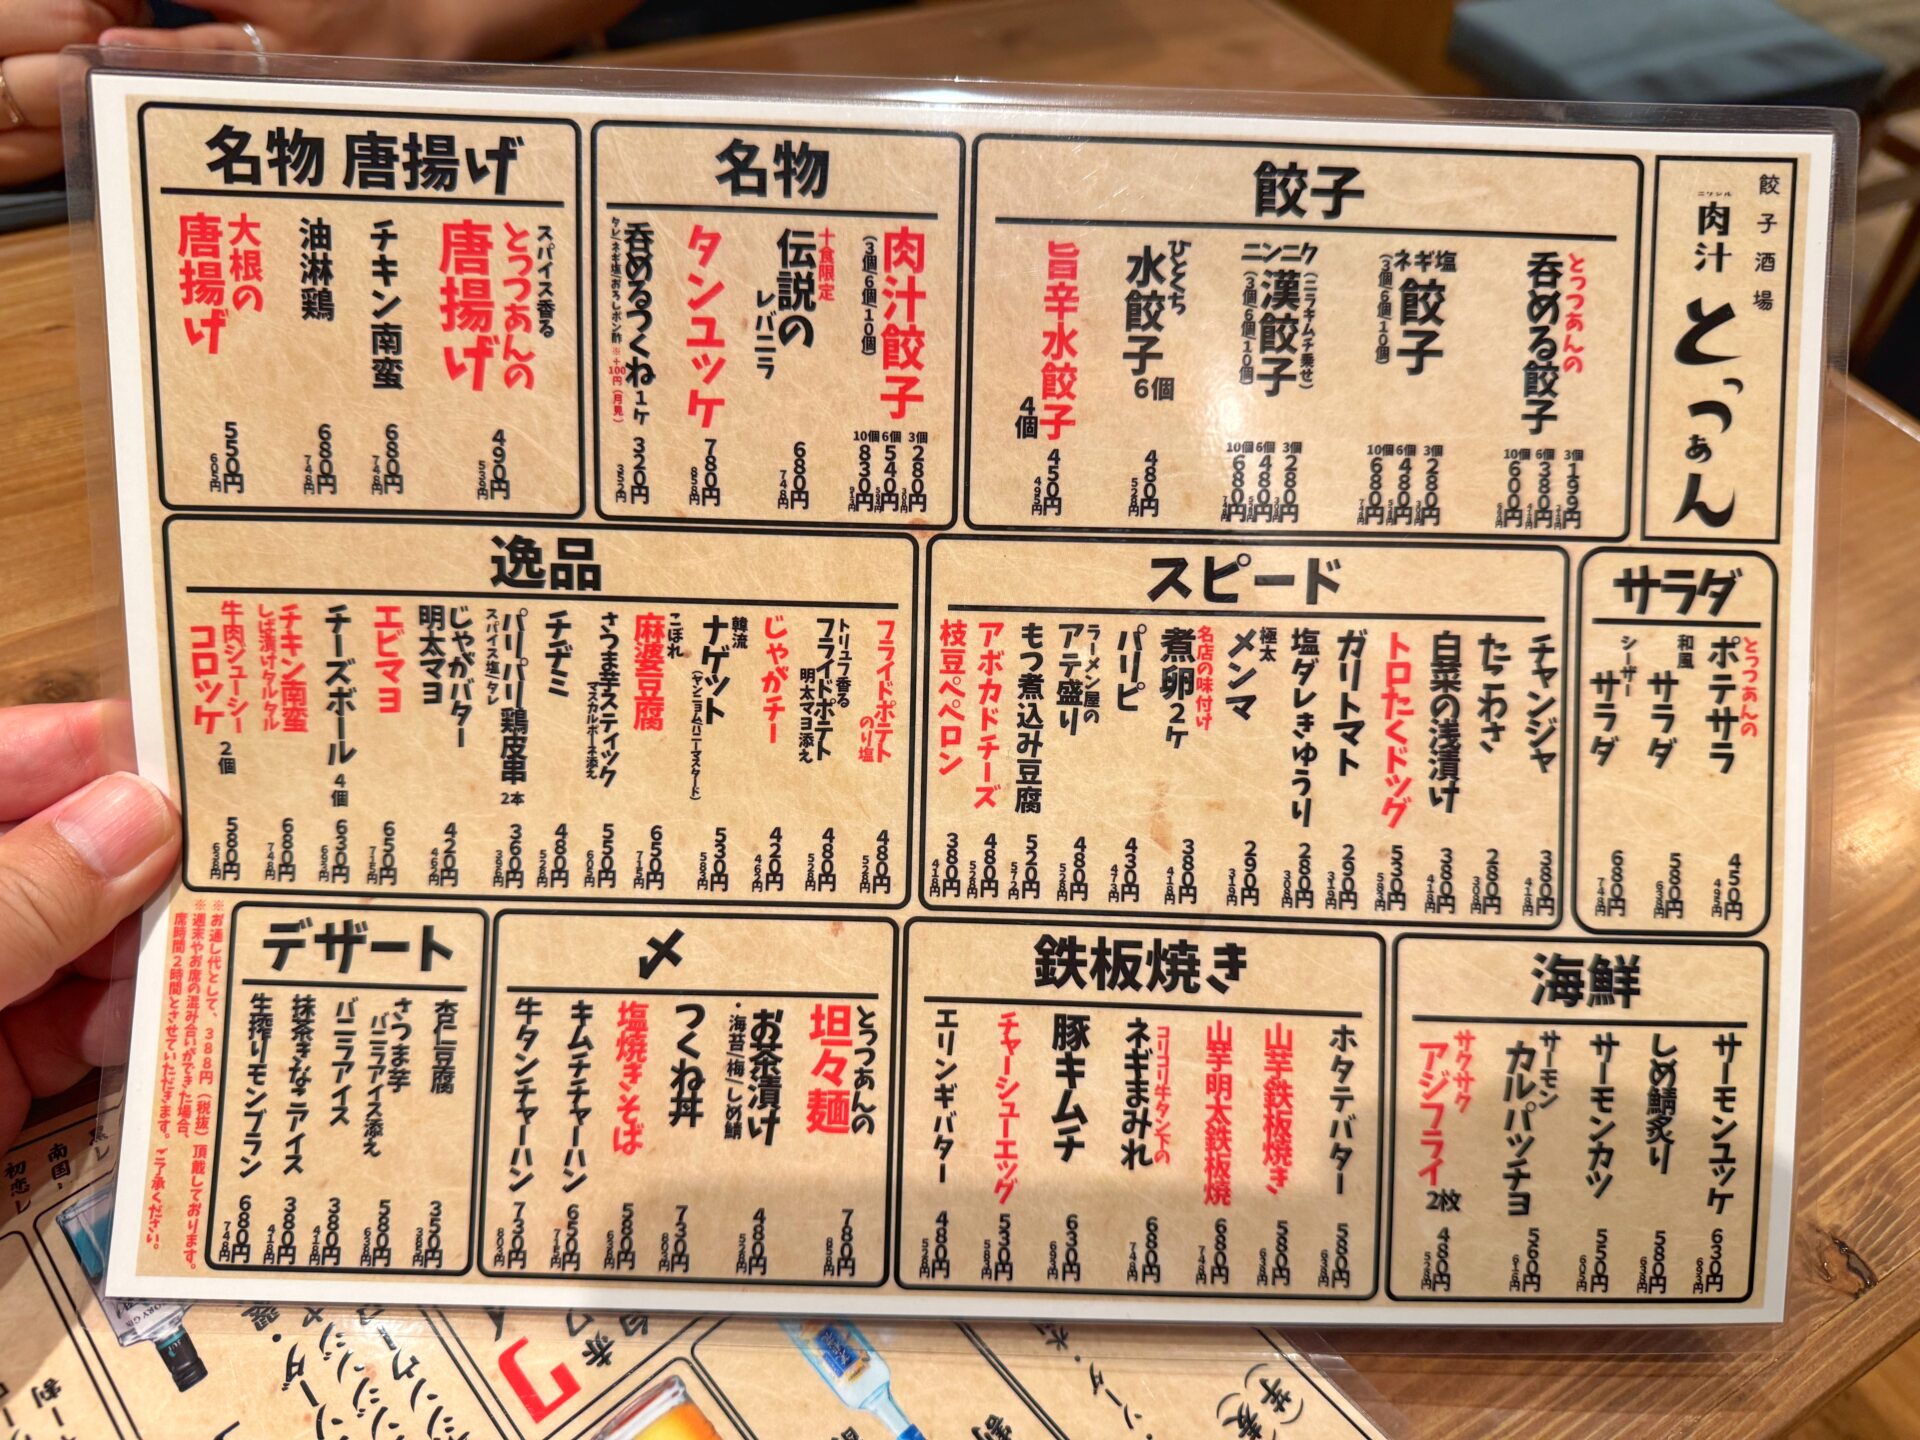 餃子酒場
ニクジル
肉汁
とっつぁん
餃子
とっつぁんの
呑める餃子
3個 199円
6個 380円 418円
10個 600円 660円
ネギ塩
餃子
(3個/6個/10個)
3個 280円 308円
6個 480円 528円
10個 680円 748円
ニンニク
漢餃子
(ニラキムチ乗せ)
(3個/6個/10個)
3個 280円 308円
6個 480円 528円
10個 680円 748円
ひとくち
水餃子 6個
480円 528円
旨辛水餃子
4個
450円 495円
名物
肉汁餃子
(3個/6個/10個)
3個 280円 308円
6個 540円
10個 830円 913円
十食限定
伝説の
レバニラ
680円 748円
タンユッケ
780円 858円
呑めるつくね 1ケ
タレ/ネギ塩/おろしポン酢 ※+100円(月見)
320円 352円
名物 唐揚げ
スパイス香る
とっつぁんの
唐揚げ
490円 539円
チキン南蛮
680円 748円
油淋鶏
680円 748円
大根の
唐揚げ
550円 605円
サラダ
とっつぁんの
ポテサラ
450円 495円
和風
サラダ
580円 638円
シーザー
サラダ
680円 748円
スピード
チャンジャ
380円 418円
たこわさ
280円 308円
白菜の浅漬け
380円 418円
トロたくドッグ
530円 583円
ガリトマト
290円 319円
塩ダレきゅうり
280円 308円
極太
メンマ
290円 319円
名店の味付け
煮卵 2ケ
380円 418円
パリピ
430円 473円
ラーメン屋の
アテ盛り
480円 528円
もつ煮込み豆腐
520円 572円
アボカドチーズ
480円 528円
枝豆ペペロン
380円 418円
逸品
フライドポテト
のり塩
480円 528円
トリュフ香る
フライドポテト
明太マヨ添え
480円 528円
じゃがチー
420円 462円
韓流
ナゲット
(ヤンニョムハニーマスタード)
530円 583円
こぼれ
麻婆豆腐
650円 715円
さつま芋スティック
マスカルポーネ添え
550円 605円
チヂミ
480円 528円
パリパリ鶏皮串 2本
スパイス塩/タレ
360円 396円
じゃがバター
明太マヨ
420円 462円
エビマヨ
650円 715円
チーズボール 4個
630円 693円
チキン南蛮
しば漬けタルタル
680円 748円
牛肉ジューシー
コロッケ 2個
580円 638円
海鮮
サーモンユッケ
630円 693円
しめ鯖炙り
580円 638円
サーモンカツ
550円 605円
サーモン
カルパッチョ
560円 616円
サクサク
アジフライ 2枚
480円 528円
鉄板焼き
ホタテバター
580円 638円
山芋鉄板焼き
580円 638円
山芋明太鉄板焼
680円 748円
コリコリ牛タン下の
ネギまみれ
680円 748円
豚キムチ
630円 693円
チャーシューエッグ
530円 583円
エリンギバター
480円 528円
〆
とっつぁんの
坦々麺
780円 858円
お茶漬け
・海苔/梅/しめ鯖
480円 528円
つくね丼
730円 803円
塩焼きそば
580円 638円
キムチチャーハン
650円 715円
牛タンチャーハン
730円 803円
デザート
杏仁豆腐
350円 385円
さつま芋
バニラアイス添え
580円 638円
バニラアイス
380円 418円
抹茶きなこアイス
380円 418円
生搾りモンブラン
680円 748円
※お通し代として、388円(税抜)頂戴しております。
※週末やお席の混み合いがでてきた場合、
席時間2時間とさせていただきます。ご了承ください。